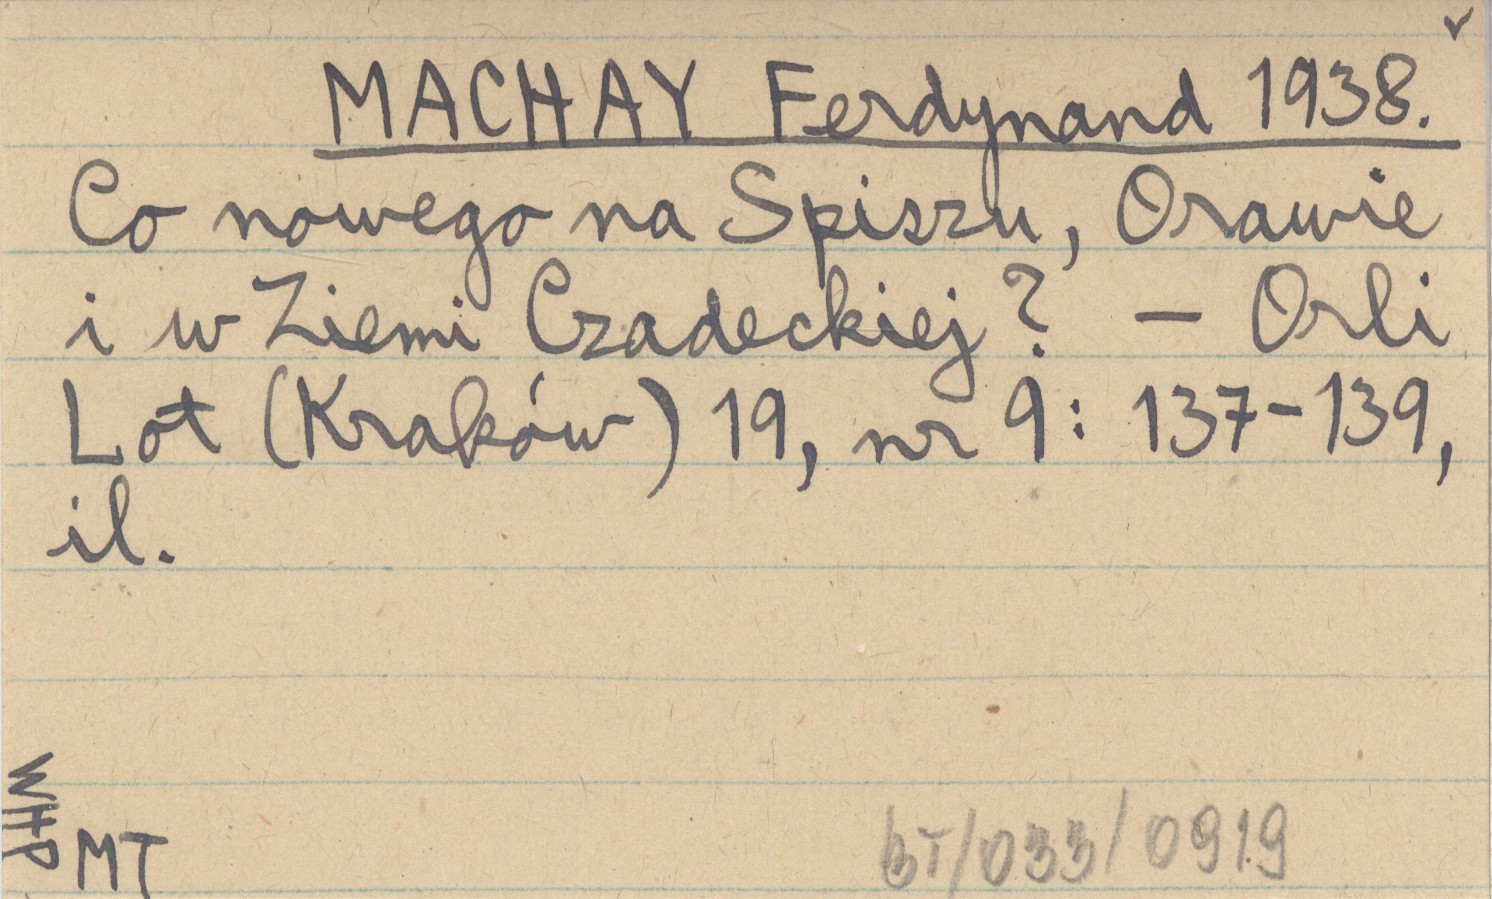 ✓
MACHAY Ferdynand 1938.
Co nowego na Spiszu, Orawie
i w Ziemi Czadeckiej? – Orli
Lot (Kraków) 19, nr 9: 137-139,
il.
WHP
MT
BT/033/0919